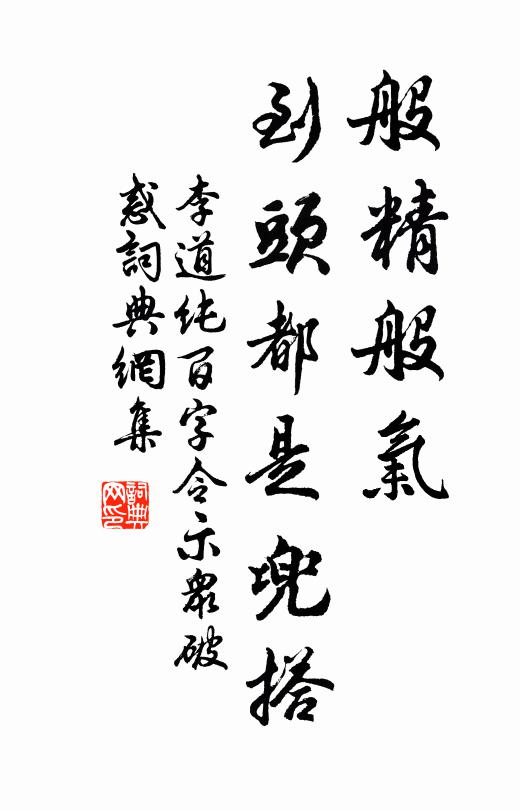 般精般氣
到頭都是兜搭
李道纯百字令示眾破
惑詞典網集
詞典
网印